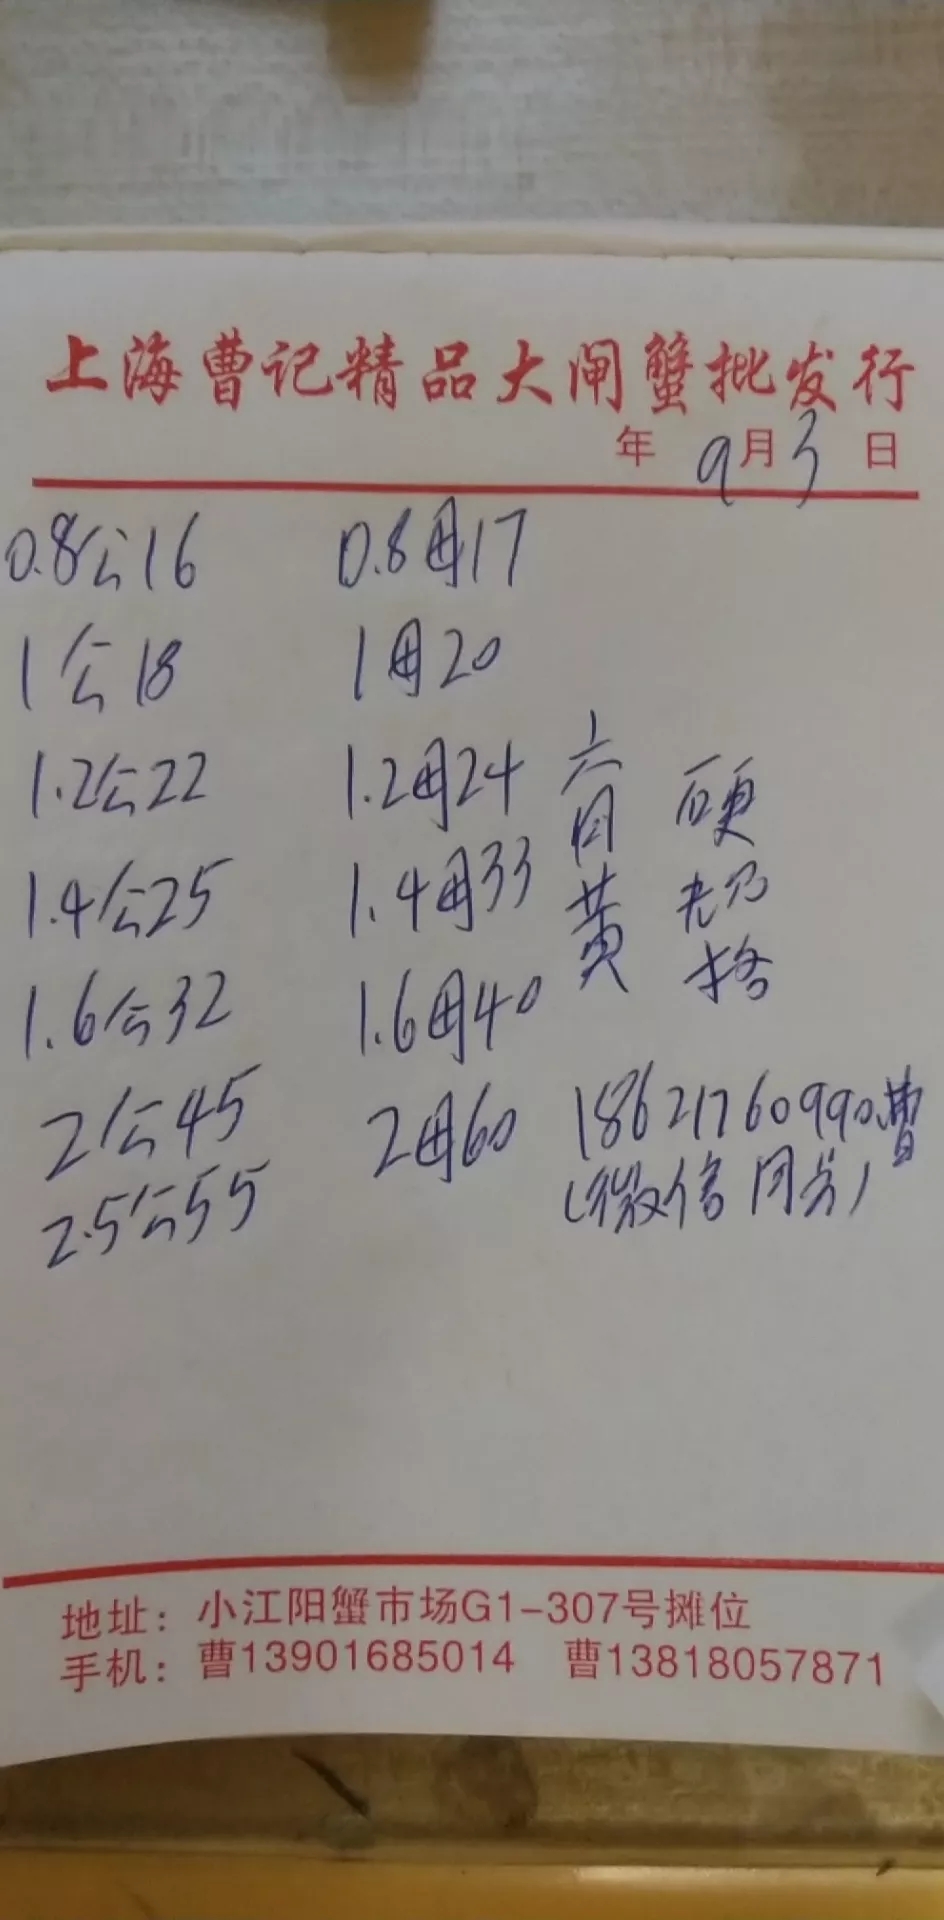 上海曹记精品大闸蟹批发行
年 9月3日
0.8公16 0.8母17
1公18 1母20
1.2公22 1.2母24
1.4公25 1.4母33
1.6公32 1.6母40
2公45 2母60
2.5公55
六月黄
硬壳
18621760990曹
(微信同号)
地址：小江阳蟹市场G1-307号摊位
手机：曹13901685014 曹13818057871